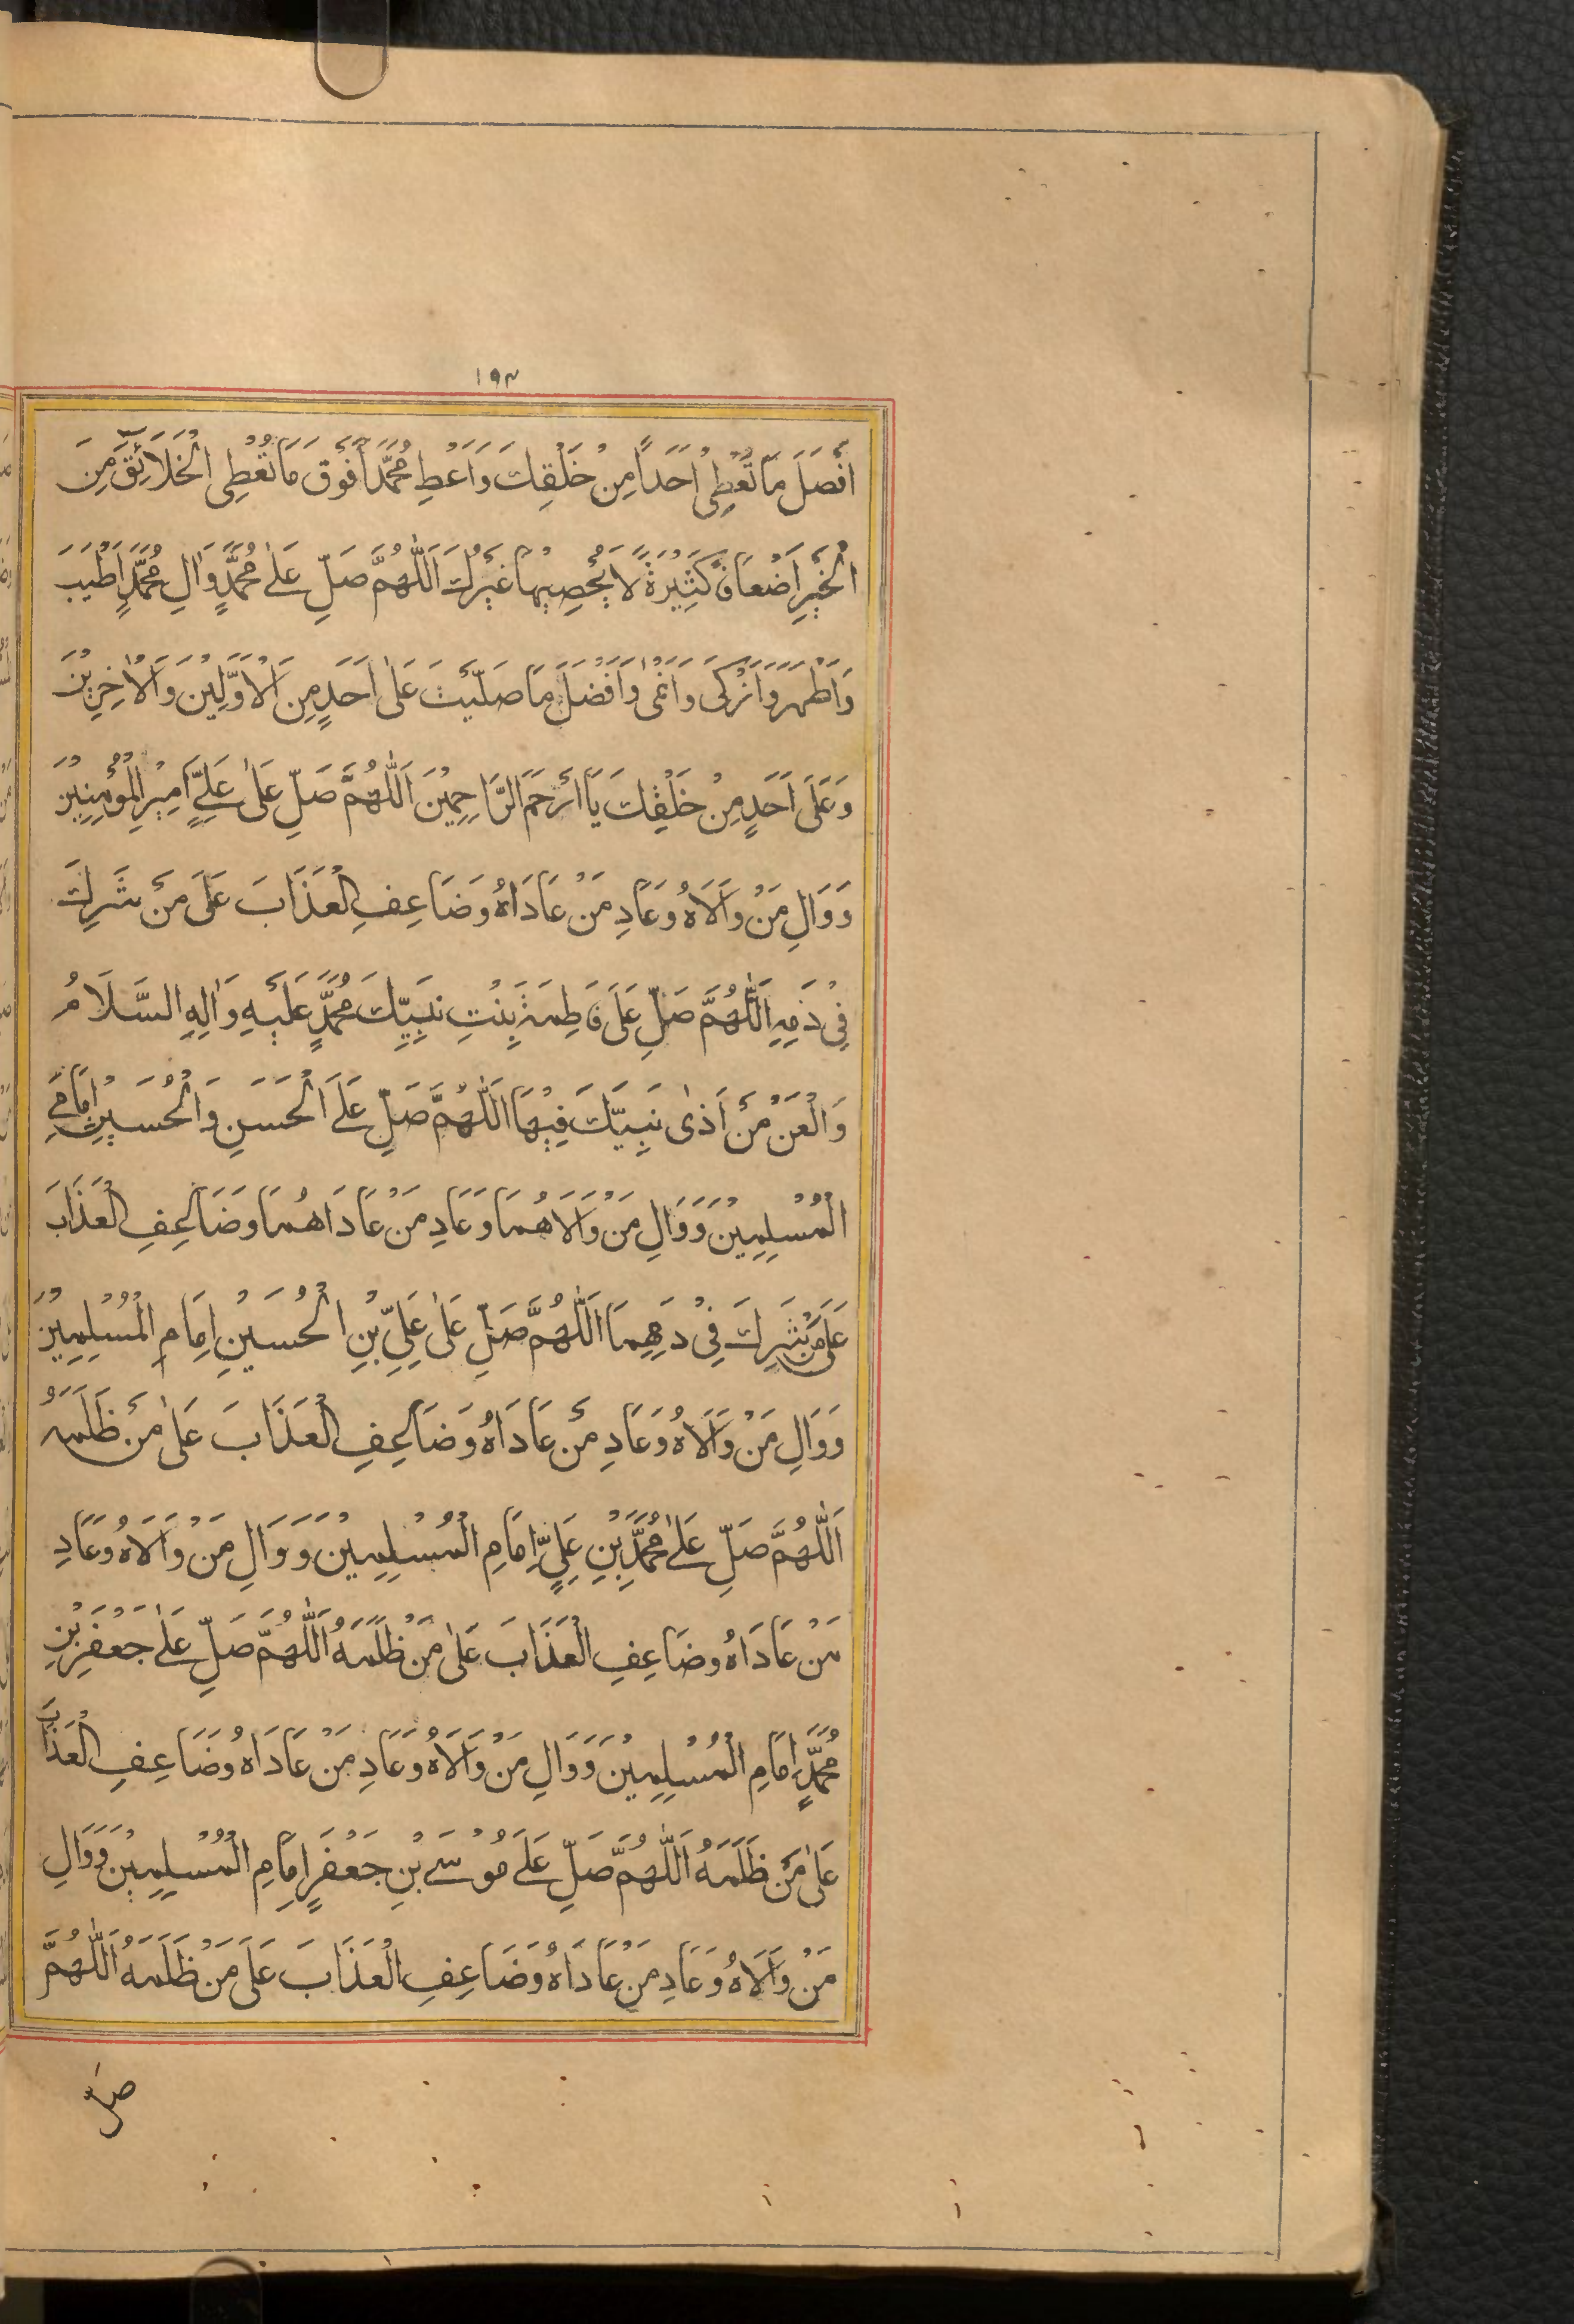 ١٩٣
اَفْضَلَ مَا تُعْطِیْ اَحَدًا مِنْ خَلْقِكَ وَاَعْطِ مُحَمَّدًا فَوْقَ مَا تُعْطِی الْخَلَائِقَ مِنَ
الْخَیْرِ اَضْعَافًا كَثِیْرَةً لَا یُحْصِیْهَا غَیْرُكَ اَللّٰهُمَّ صَلِّ عَلٰی مُحَمَّدٍ وَاٰلِ مُحَمَّدٍ اَطْیَبَ
وَاَطْهَرَ وَاَزْكَی وَاَنْمٰی وَاَفْضَلَ مَا صَلَّیْتَ عَلٰی اَحَدٍ مِنَ الْاَوَّلِیْنَ وَالْاٰخِرِیْنَ
وَعَلَی اَحَدٍ مِنْ خَلْقِكَ یَا اَرْحَمَ الرَّاحِمِیْنَ اَللّٰهُمَّ صَلِّ عَلٰی عَلِیٍّ اَمِیْرِ الْمُؤْمِنِیْنَ
وَوَالِ مَنْ وَالَاهُ وَعَادِ مَنْ عَادَاهُ وَضَاعِفِ الْعَذَابَ عَلَی مَنْ شَرِكَ
فِیْ دَمِهِ اَللّٰهُمَّ صَلِّ عَلَی فَاطِمَةَ بِنْتِ نَبِیِّكَ مُحَمَّدٍ عَلَیْهِ وَاٰلِهِ السَّلَامُ
وَالْعَنْ مَنْ اَذٰی نَبِیَّكَ فِیْهَا اَللّٰهُمَّ صَلِّ عَلَی الْحَسَنِ وَالْحُسَیْنِ اِمَامَیِ
الْمُسْلِمِیْنَ وَوَالِ مَنْ وَالَاهُمَا وَعَادِ مَنْ عَادَاهُمَا وَضَاعِفِ الْعَذَابَ
عَلٰی مَنْ شَرِكَ فِیْ دَمِهِمَا اَللّٰهُمَّ صَلِّ عَلٰی عَلِیِّ بْنِ الْحُسَیْنِ اِمَامِ الْمُسْلِمِیْنَ
وَوَالِ مَنْ وَالَاهُ وَعَادِ مَنْ عَادَاهُ وَضَاعِفِ الْعَذَابَ عَلٰی مَنْ ظَلَمَهُ
اَللّٰهُمَّ صَلِّ عَلٰی مُحَمَّدِ بْنِ عَلِیٍّ اِمَامِ الْمُسْلِمِیْنَ وَوَالِ مَنْ وَالَاهُ وَعَادِ
مَنْ عَادَاهُ وَضَاعِفِ الْعَذَابَ عَلٰی مَنْ ظَلَمَهُ اَللّٰهُمَّ صَلِّ عَلٰی جَعْفَرِ بْنِ
مُحَمَّدٍ اِمَامِ الْمُسْلِمِیْنَ وَوَالِ مَنْ وَالَاهُ وَعَادِ مَنْ عَادَاهُ وَضَاعِفِ الْعَذَابَ
عَلٰی مَنْ ظَلَمَهُ اَللّٰهُمَّ صَلِّ عَلَی مُوْسَی بْنِ جَعْفَرٍ اِمَامِ الْمُسْلِمِیْنَ وَوَالِ
مَنْ وَالَاهُ وَعَادِ مَنْ عَادَاهُ وَضَاعِفِ الْعَذَابَ عَلَی مَنْ ظَلَمَهُ اَللّٰهُمَّ
صل